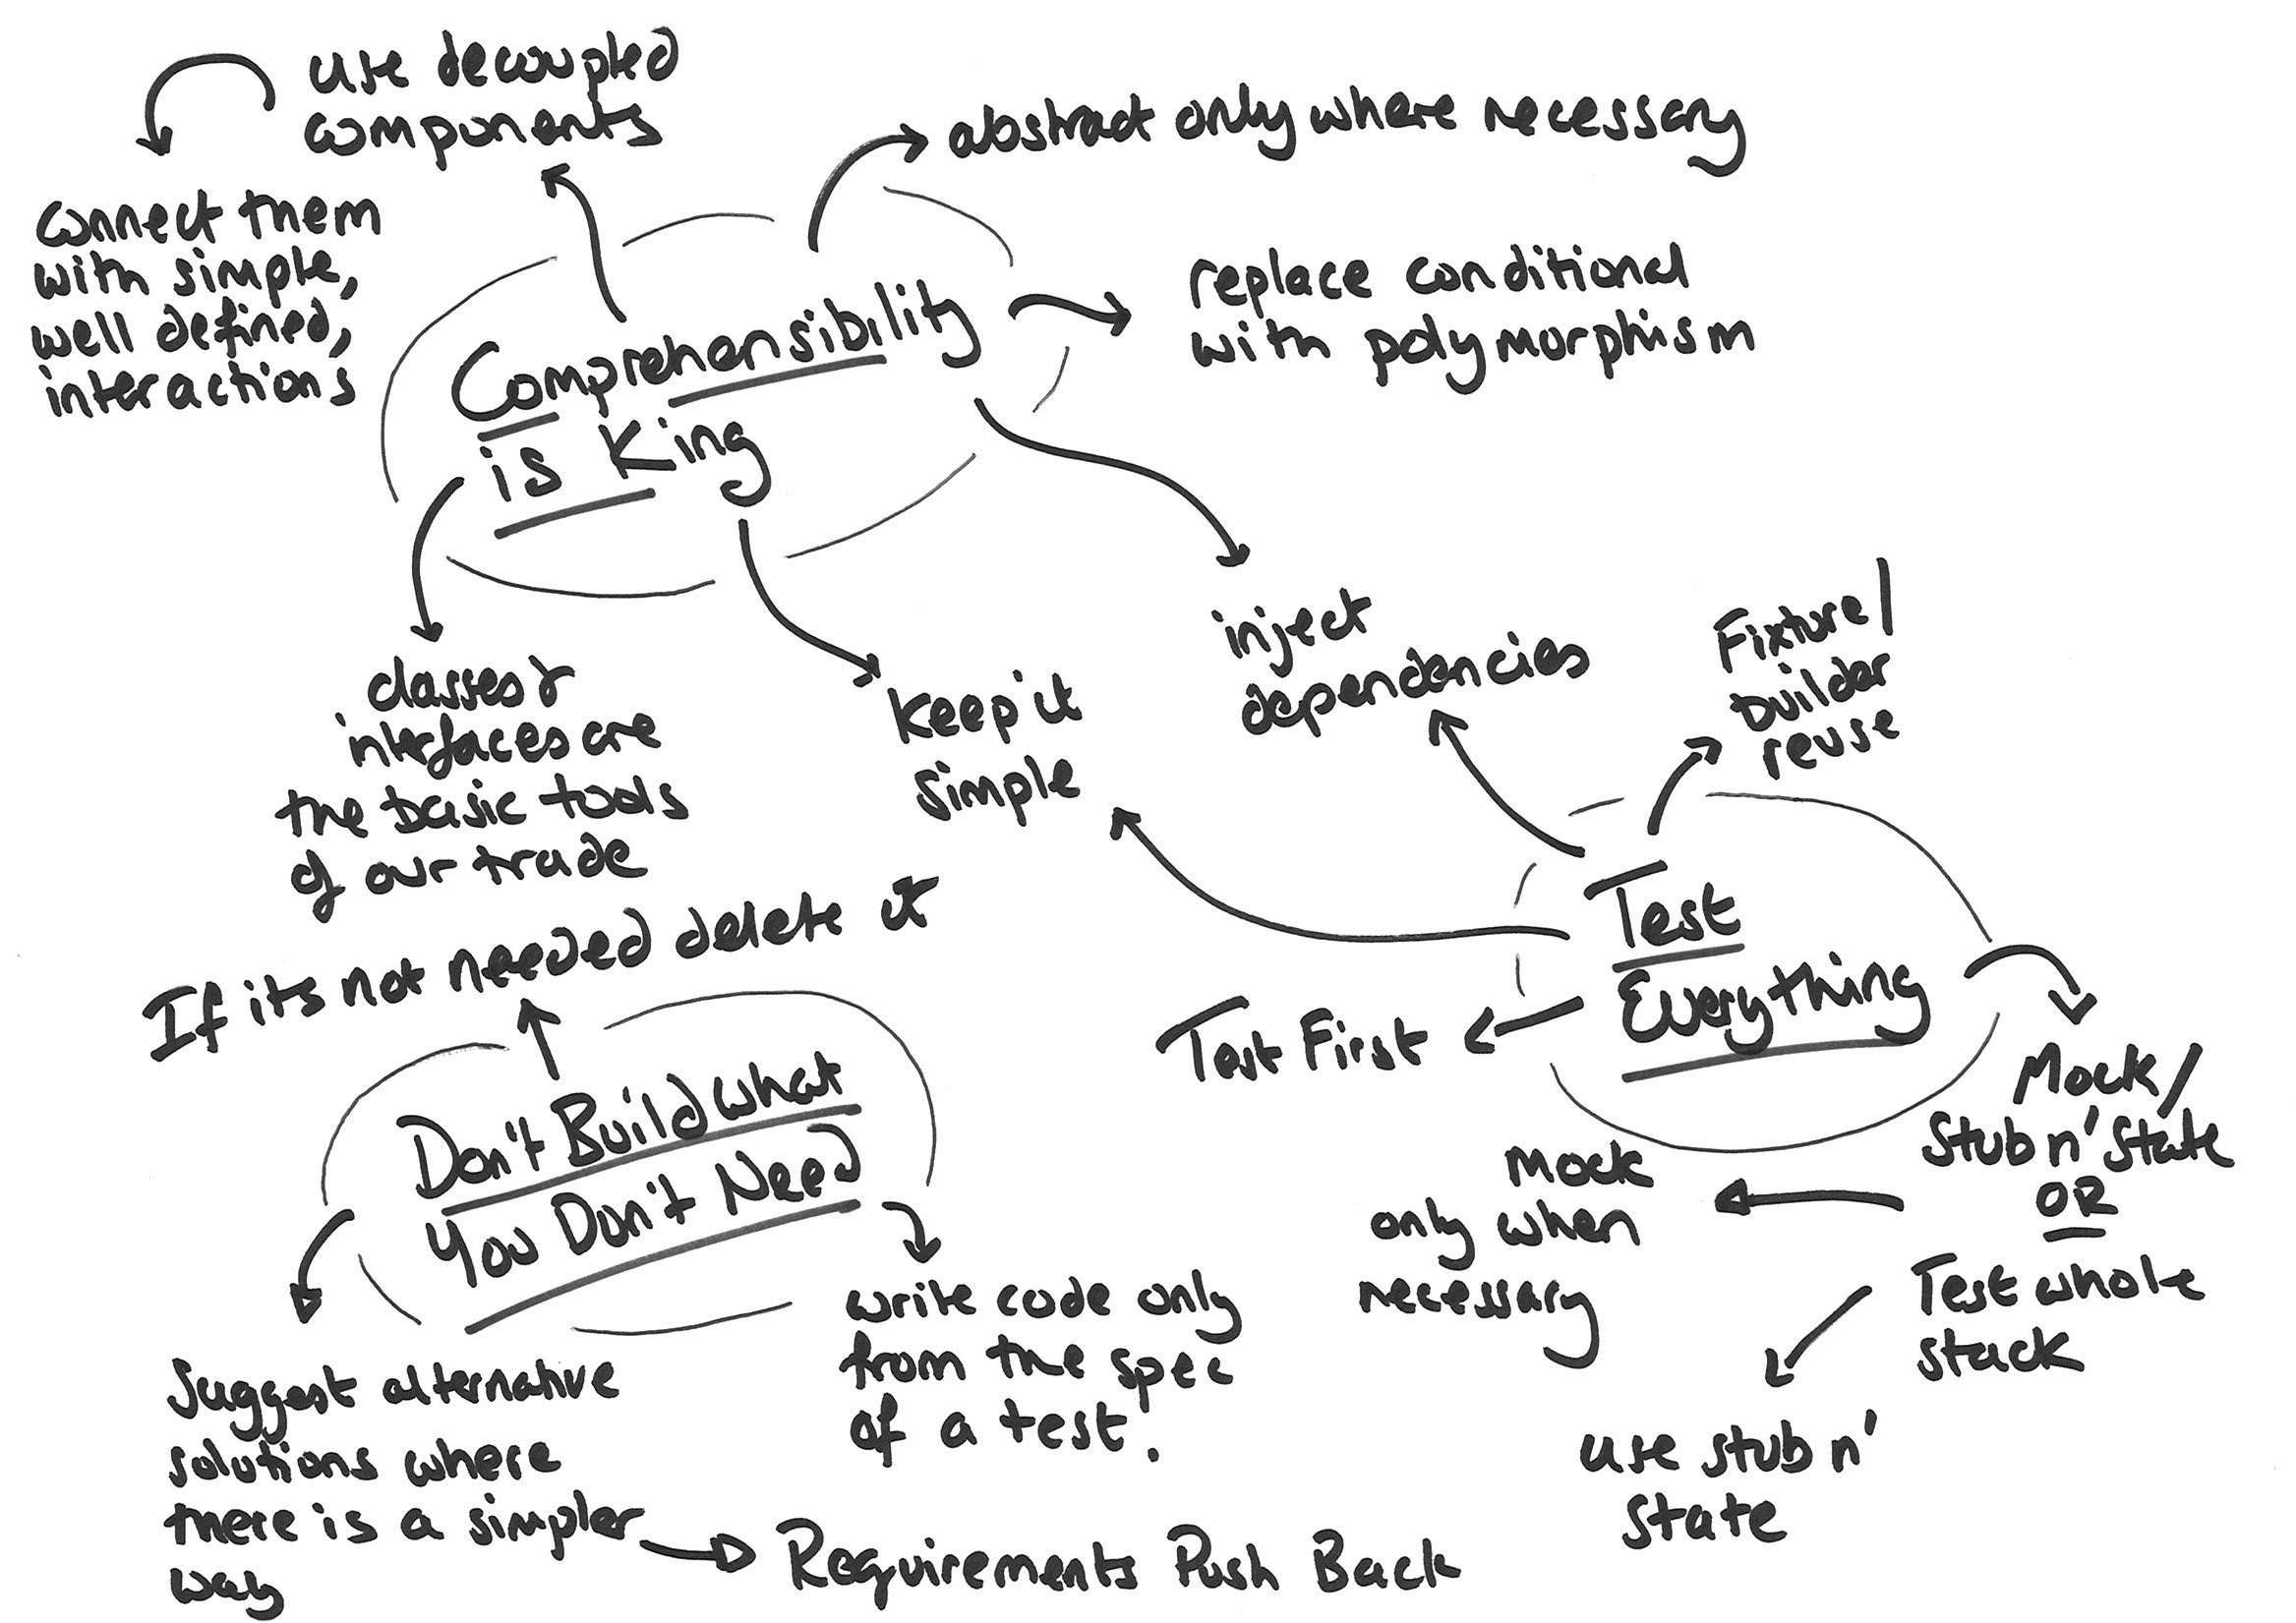 use decoupled
components
connect them
with simple,
well defined,
interactions
abstract only where necessary
replace conditional
with polymorphism
Comprehensibility
is King
classes &
interfaces are
the basic tools
of our trade
keep it
simple
inject
dependencies
Fixture/
builder
reuse
Test
Everything
Test First
Mock/
Stub n' State
OR
Test whole
stack
Mock
only when
necessary
use stub n'
state
If its not needed delete it
Don't Build what
You Don't Need
write code only
from the spec
of a test!
Suggest alternative
solutions where
there is a simpler
way
Requirements Push Back